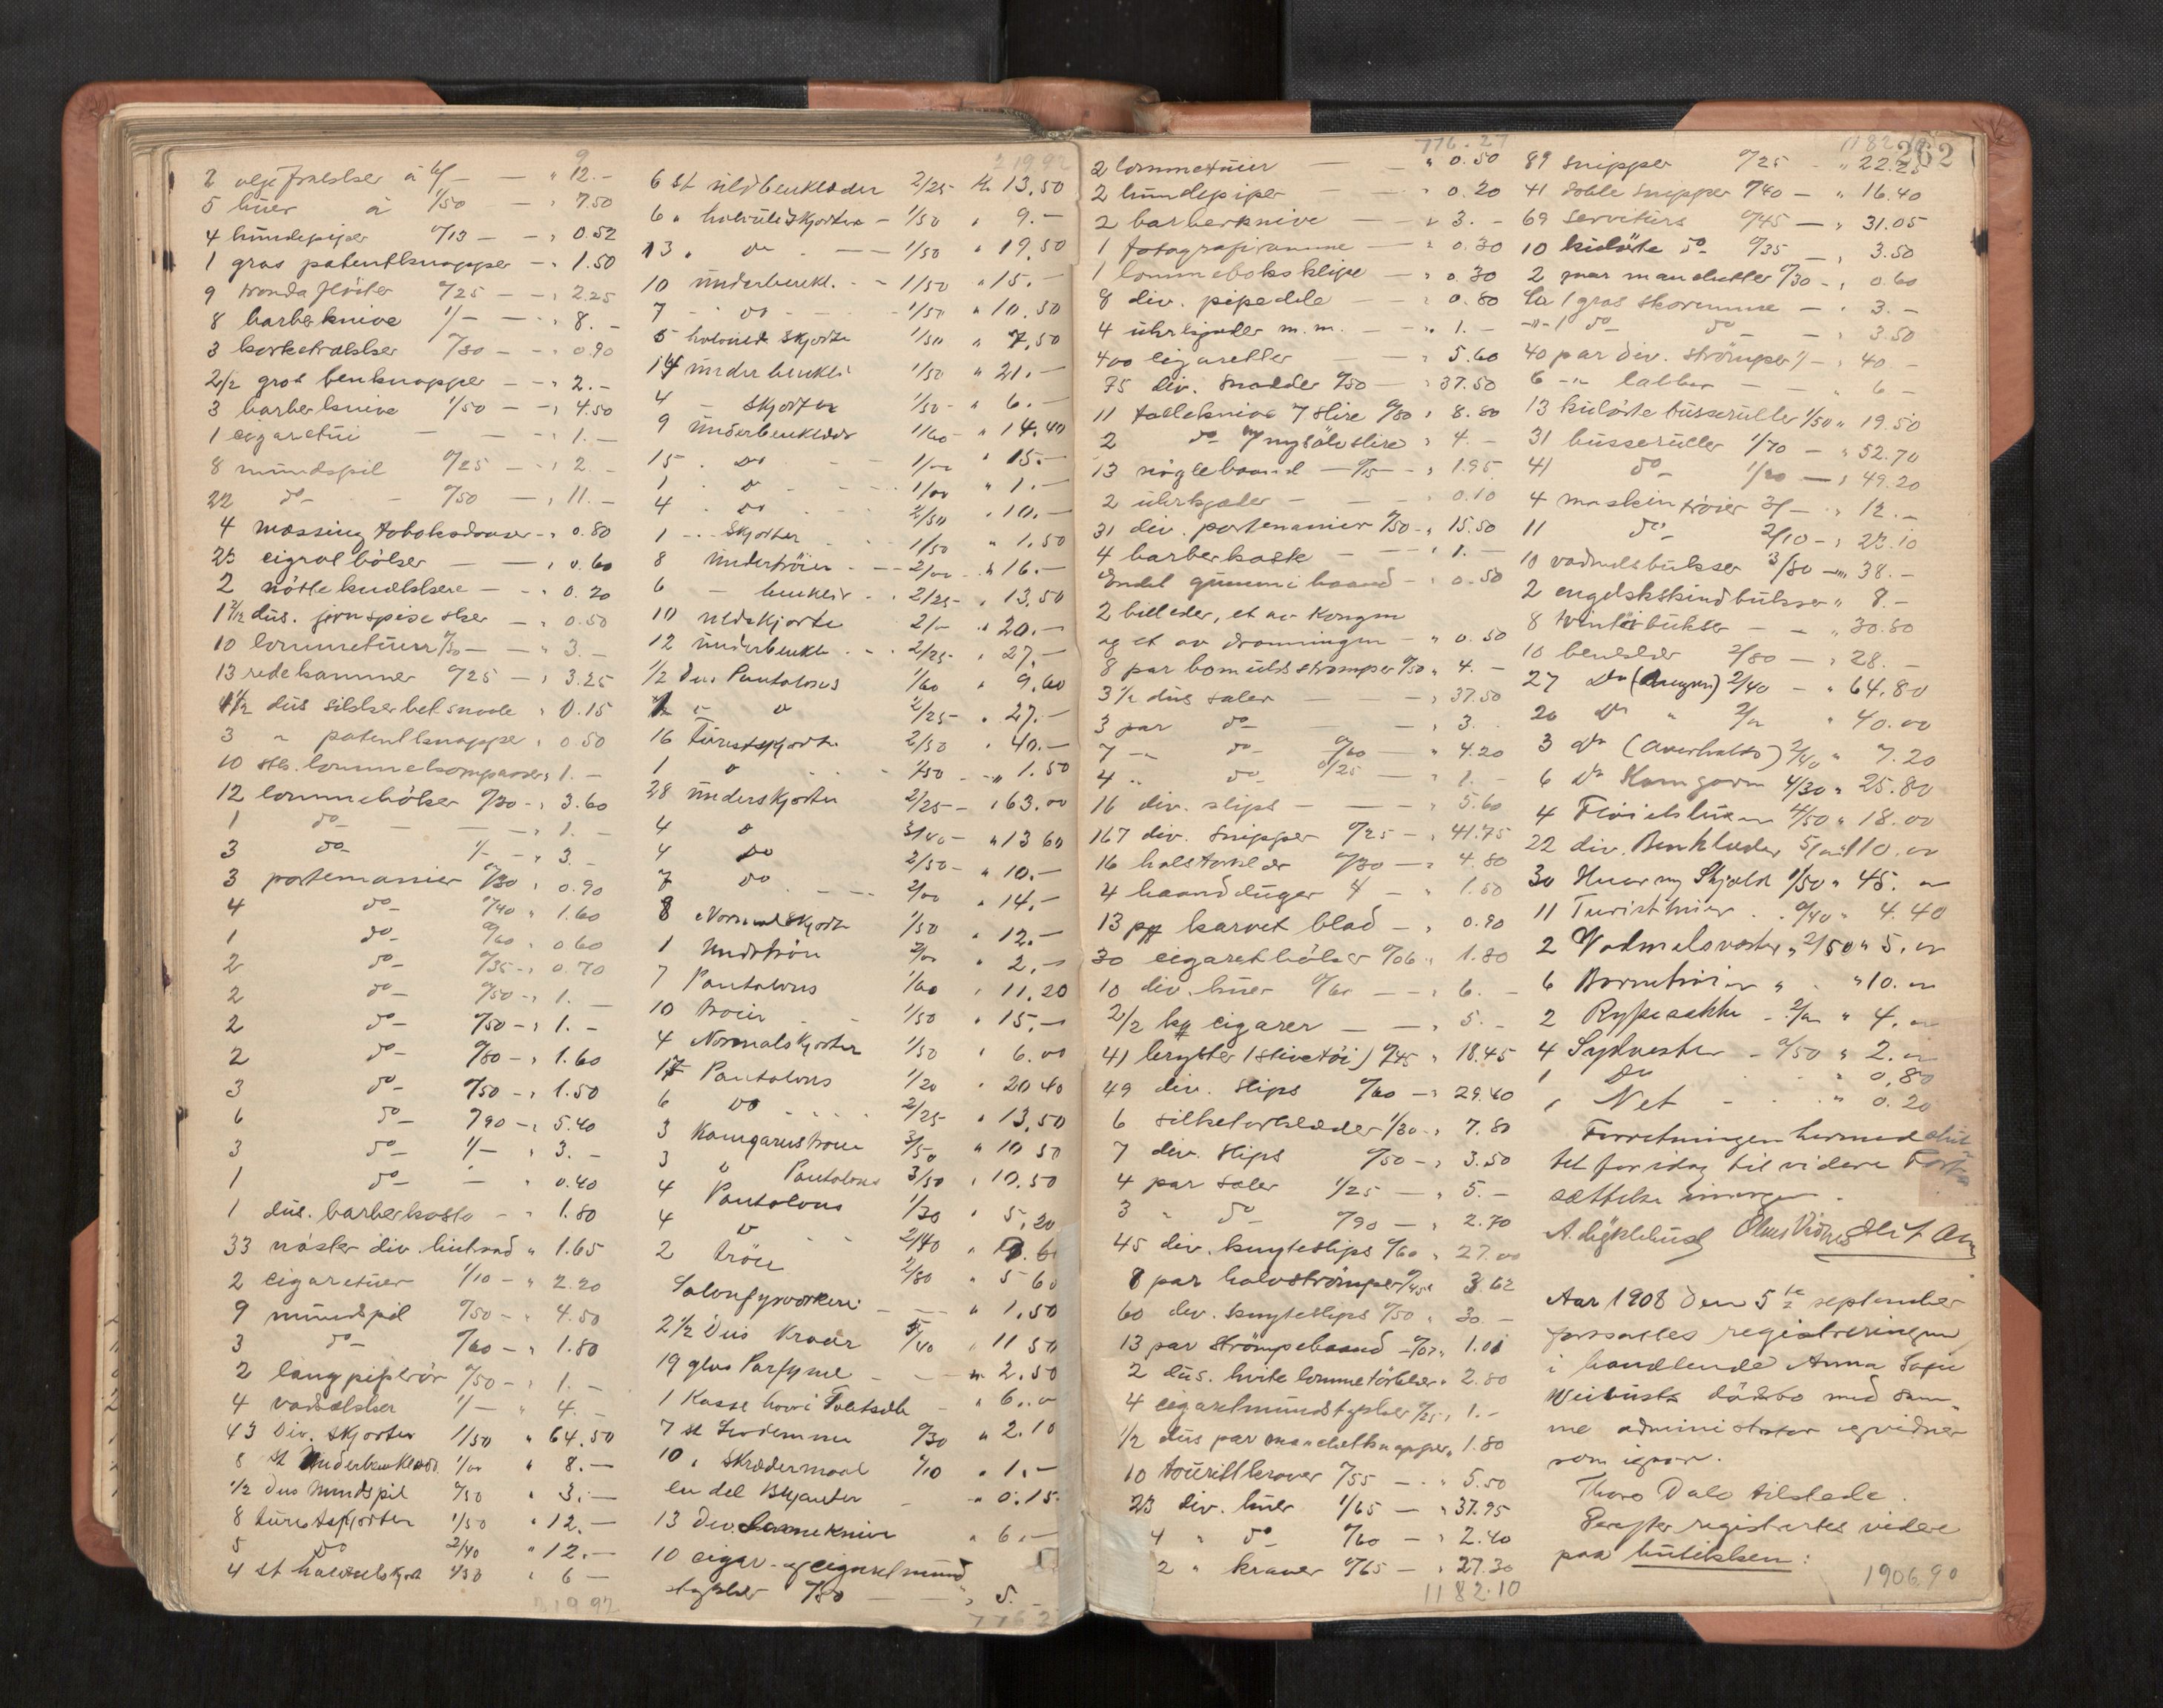 9
2 oljefrakker à 6/- — " 12.-
5 huer à 1/50 — " 7.50
4 hundepiper 0/13 — " 0.52
1 gros patentknapper — " 1.50
9 0/25 — " 2.25
8 barberknive 1/- — " 8.-
3 korketrækker 0/30 — " 0.90
2 1/2 gros benknapper — " 2.-
3 barberknive 1/50 — " 4.50
1 cigaretui — " 1.-
8 mundspil 0/25 — " 2.-
22 do- 0/50 — " 11.-
4 messing tobaksdaaser " 0.80
23 " 0.60
2 nötteknækkere — " 0.20
1 1/2 dus. jernspiseskeer — " 0.50
10 lommetuier 0/30 — " 3.-
13 redekammer 0/25 — " 3.25
1 1/2 dus " 0.15
3 " patentknapper " 0.50
10 stk. lommekompasser " 1.-
12 lommeböker 0/30 - " 3.60
1 do- — " 1.-
3 do- 1/- — " 3.-
3 portemonier 0/30 " 0.90
4 do- 0/40 " 1.60
1 do- 0/60 " 0.60
2 do- 0/35 - " 0.70
2 do- 0/50 - " 1.-
2 do- 0/50 - " 1.-
2 do- 0/80 - " 1.60
3 do- 0/50 - " 1.50
6 do- 0/90 - " 5.40
3 do- 1/- " 3.-
1 do- — " 0.40
1 dus. barberkoste - " 1.80
33 nöster div. " 1.65
2 cigaretuier 1/10 - " 2.20
9 mundspil 0/50 - " 4.50
3 do- 0/60 - " 1.80
2 langpiperör 0/50 - " 1.-
4 1/- " 4.-
43 Div. skjorter 1/50 " 64.50
8 st Underbenklæder 1/00 " 8.-
1/2 dus Mundspil 0/50 " 3.-
8 turistskjorter 1/50 " 12.-
5 do 2/40 " 12.-
4 st 1/50 " 6 -
21992
21992
6 st uldbenklæder 2/25- Kr 13.50
6 " skjorter - 1/50 " 9.-
13 " do — 1/50 " 19.50
10 underbenkl. - 1/50 " 15.-
7 - do - - 1/50 " 10.50
5 skjorte 1/50 " 7.50
14 underbenkl: 1/50 " 21.-
4 - skjorter 1/50- " 6.-
9 underbenklæder 1/60- " 14.40
15 . do - 1/00 " 15.-
1 . do - 1/00 " 1.-
4 . do - 2/50 " 10.-
1 - skjorter 1/50 " 1.50
8 undertröier - 2/00 " 16.-
6 - benklær - 2/25- " 13.50
10 uldskjorte 2/- " 20.-
12 underbenkl. - 2/25- " 27.-
1/2 dus Pantalons 1/60 " 9.60
1 " do 2/25- " 27.-
16 Turistskjorte 2/50 " 40.-
1 do - 1/50 - " 1.50
28 underskjorter 2/25- " 63.00
4 do 3/40- " 13 60
4 do 2/50- " 10.-
7 do - 2/00 " 14.-
8 Normalskjorte 1/50 " 12.-
1 Undertröie 2/00 " 2.-
7 Pantalons 1/60 " 11.20
10 troier 1/50 " 15.-
4 Normalskjorter 1/50 " 6.00
17 Pantalons 1/20 " 20 40
6 do . . 2/25- " 13.50
3 Kamgarnstroie 3/50 " 10 50
3 do Pantalons 3/50 " 10.50
4 Pantalons 1/30 " 5.20
4 do - 2/40
2 tröie 2/80 " 5 60
Salonfyrværkeri — " 1.50
2 1/2 dus Kraver /40 " 11 50
19 glas Parfyme - - " 2.50
1 Kasse - " 6.00
7 st 0/30 " 2.10
10 " Skrædermaal 0/10 " 1.-
en del - " 0.15
13 Div " 6.-
10 cigar- og cigaretmund
stykker 0/50 — " 5.-
776 2
776.27
2 lommetuier — " 0.50
2 hundepiper — " 0.20
2 barberknive — " 3.-
1 fotografiramme — " 0.30
1 — " 0.30
8 div. pipedele — " 0.80
4 uhrkjæder m.m. — " 1.-
400 cigaretter — " 5.60
75 div. snadder 0/50 — " 37.50
11 tolleknive 7 slire 0/80 " 8.80
2 do- m/ nysölvslire " 4.-
13 nöglebaand — 0/15 - " 1.95
2 uhrkjæder - — " 0.10
31 div. portemonier 0/50 - " 15.50
4 barberkoste — " 1.-
Endel gummibaand - " 0.50
2 billeder, et av Kongen
og et av dronningen - " 0.50
8 par bomuldsströmper 0/50 " 4.-
3 1/2 dus saler — " 37.50
3 par do- — " 3.-
7 -"- do- 0/60 — " 4.20
4 " do- 0/25 — " 1.-
16 div. slips — " 5.60
167 div. snipper 0/25 - " 41.75
16 halstorklær 0/30 — " 4.80
4 haandduger — " 1.50
13 pk karvet blad - " 0.90
30 0/06 " 1.80
10 div. huer 0/60 — " 6.-
2 1/2 kg cigarer — " 5.-
41 brystter (stivetöi) 0/45 " 18.45
49 div. slips 0/60 - " 29.40
6 silketorklæder 1/30 - " 7.80
7 div. slips 0/50 - " 3.50
4 par saler 1/25 — " 5.-
3 " do- 0/90 — " 2.70
45 div. knyteslips 0/60 " 27.00
8 par halvströmper " 3 62
60 div. knyteslips 0/50 " 30.-
13 par strömpebaand " 1.01
2 dus. hvite lommetörklær " 2.80
4 cigaretmundstykker 0/25 " 1.-
1/2 dus par manchetknapper " 1.80
10 touristkraver 0/55 — " 5.50
23 div. huer 1/65 — " 37.95
4 " do 0/60 — " 2.40
2 " kraver 0/65 — " 27.30
1182.10
1182.10
262
89 snipper 0/25 " 22.25
41 doble snipper 0/40 - " 16.40
69 serviturs 0/45 — " 31.05
10 kulörte do- 0/35 — " 3.50
2 par manchetter 0/30 - " 0.60
Ca 1 gros skoremme — " 3.-
-"- 1 do- do- — " 3.50
40 par div. strömper 1/- " 40 -
6 -"- labber — " 6 -
13 kulörte busseruller 1/50 " 19.50
31 busseruller 1/70 — " 52.70
41 do- 1/20 — " 49.20
4 maskintröier 3/- — " 12.-
11 do- 2/10 - " 23.10
10 vadmelsbukser 3/80 — " 38.-
2 engelskskindbukser " 8.-
8 vinterbukser — " 30.80
10 benklær 2/80 — " 28.-
27 do 2/40 — " 64.80
20 do " 2/00 " 40.00
3 do (averhalls) 2/40 " 7.20
6 do Kamgarn 4/30 " 25.80
4 4/50 " 18.00
22 div. Benklæder 5/00 " 110.00
30 Huer m/ Skjold 1/50 " 45.00
11 Turisthuer . . 0/40 " 4.40
2 Vadmelsvester " 2/50 " 5.00
6 Barnetröier " . " 10.00
2 Rypesække - 2/00 " 4.00
4 Sydvester - 0/50 " 2.00
1 do . " 0.80
1 Net - . " 0.20
Forretningen hermed slut-
tet for idag til videre Fort-
sættelse imorgen.
Aar 1908 den 5te september
fortsattes registreringen
i handlende Anna Sofie
Weibusts dödsbo med sam-
me administrator og vidner
som igaar.
Thora Dale tilstede.
Derefter registrertes videre
paa butikken:
1906.90